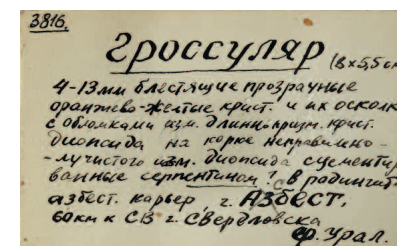 3816.
Гроссуляр (8×5,5 см
4-13 мм блестящие прозрачные
оранжево-желтые крист. и их осколк
с обломками изм. длинно призм. крист.
диопсида на корке неправильно-
-лучистого изм. диопсида сцементи
ванные серпентином? в родингит
азбест. карьер, г. Азбест,
60 км к СВ г. Свердловска
ср. Урал.